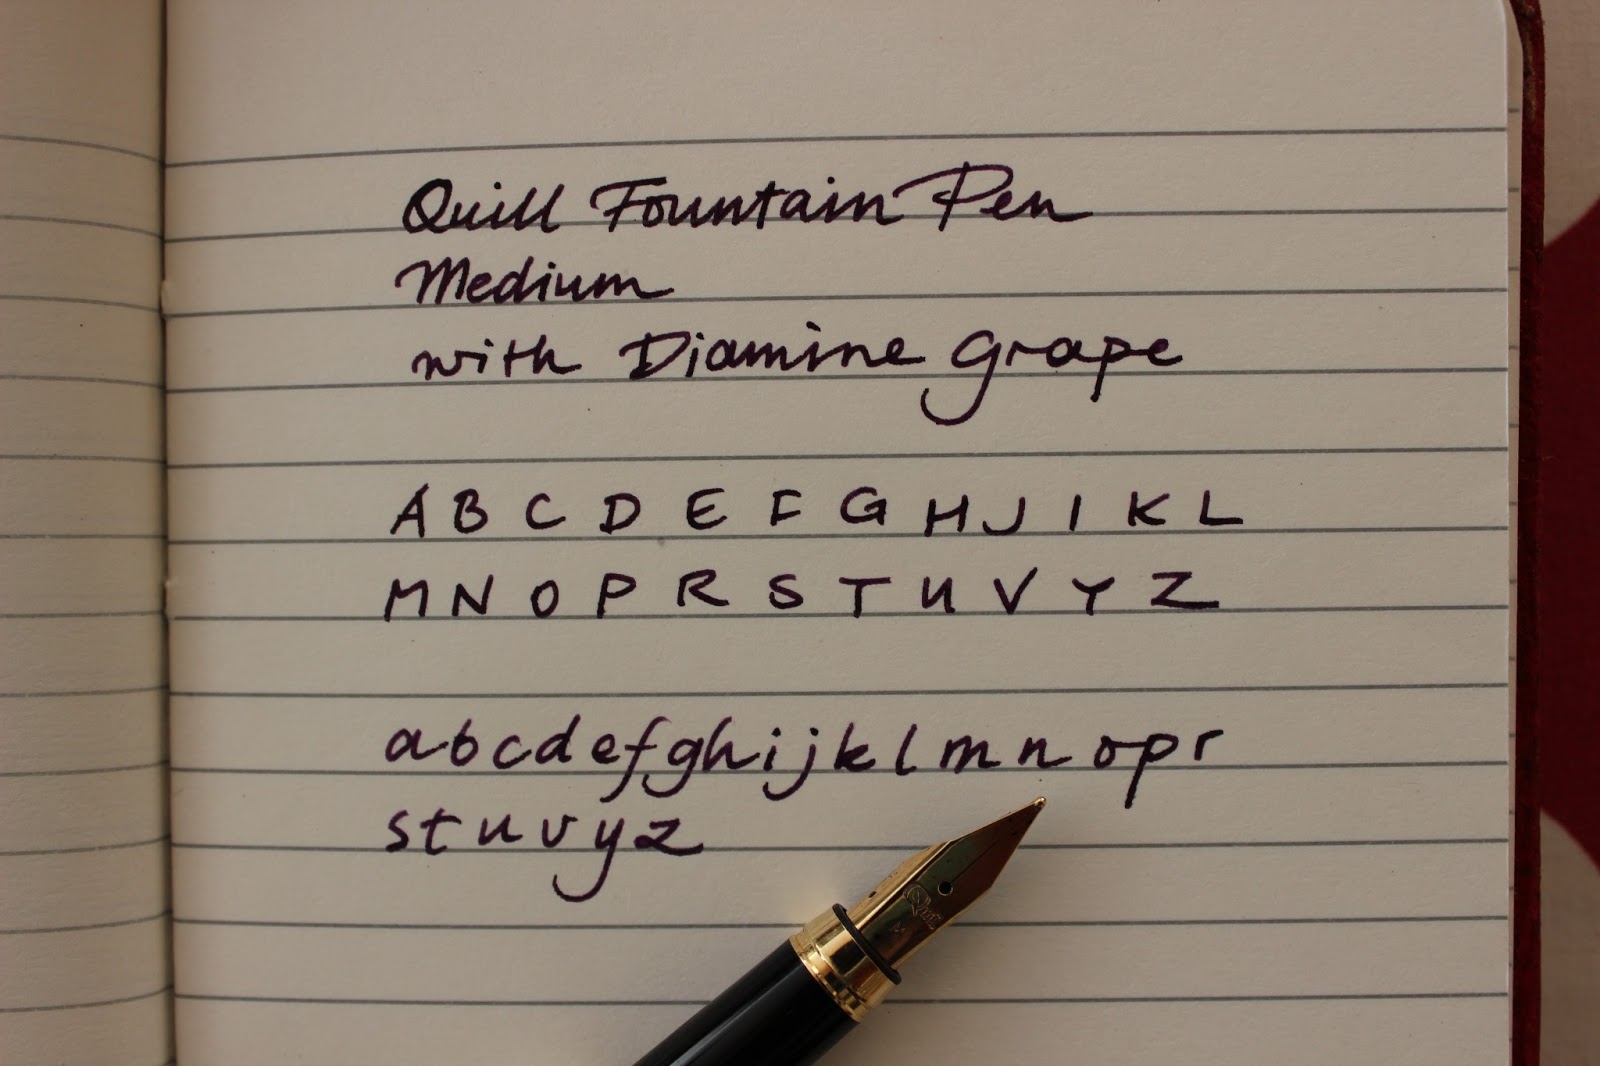 Quill Fountain Pen
Medium
with Diamine Grape
A B C D E F G H J I K L
M N O P R S T U V Y Z
a b c d e f g h i j k l m n o p r
s t u v y z
Quill
M